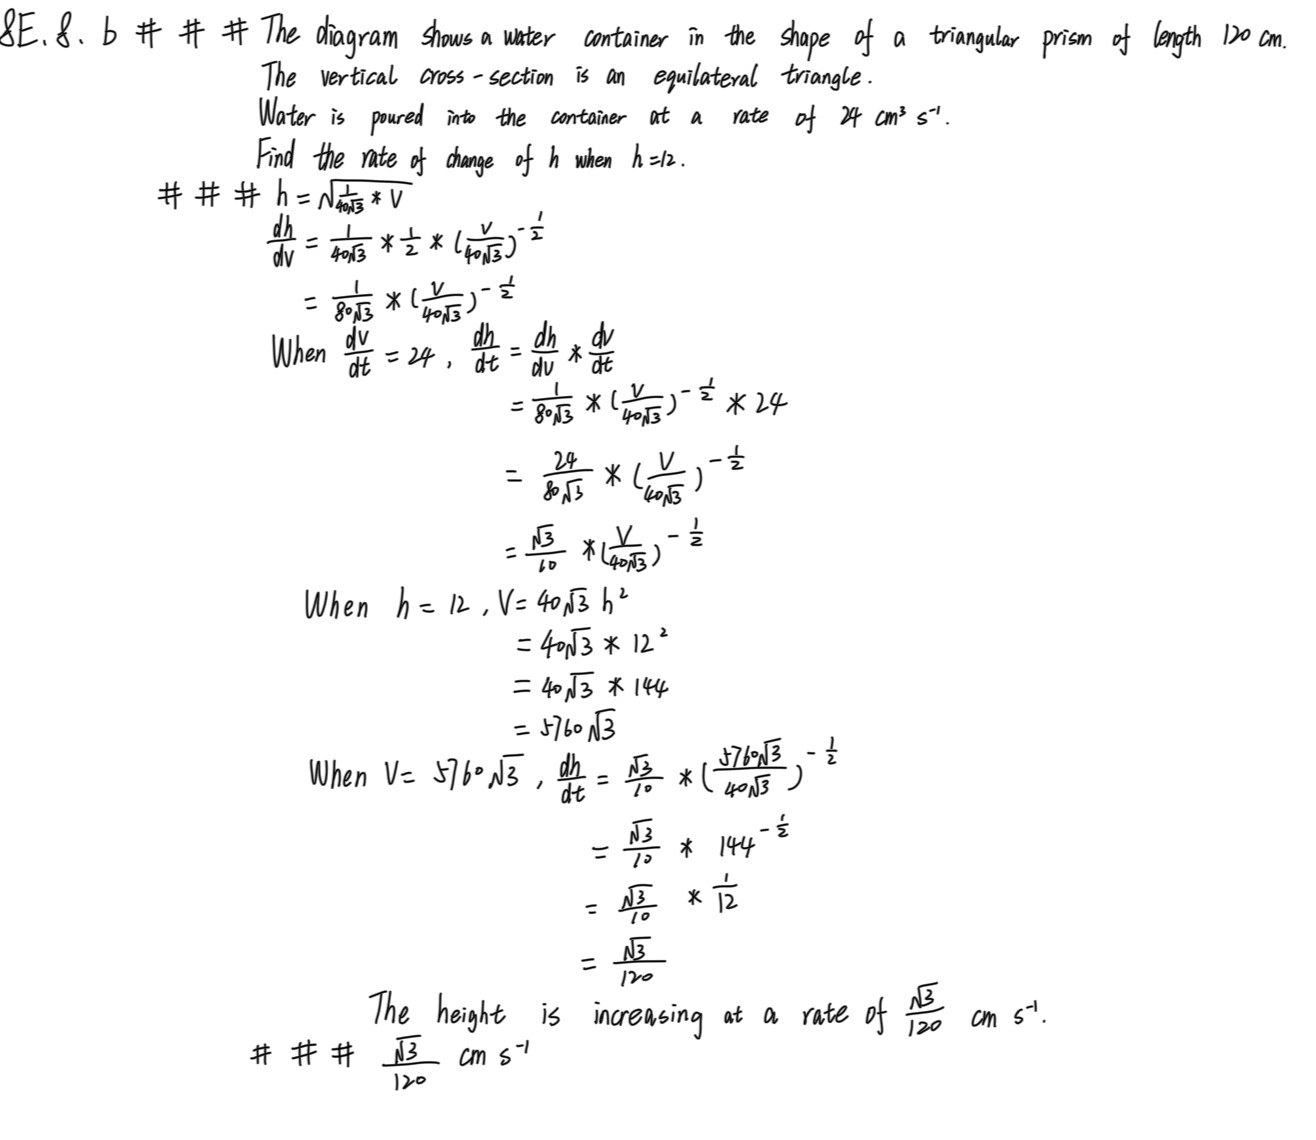 8E. 8. b # # # The diagram shows a water container in the shape of a triangular prism of length 120 cm.
The vertical cross-section is an equilateral triangle.
Water is poured into the container at a rate of 24 cm³ s⁻¹.
Find the rate of change of h when h=12.
# # # h = √(1/(40√3) * V)
dh/dv = 1/(40√3) * 1/2 * (V/(40√3))^(-1/2)
= 1/(80√3) * (V/(40√3))^(-1/2)
When dv/dt = 24, dh/dt = dh/dv * dv/dt
= 1/(80√3) * (V/(40√3))^(-1/2) * 24
= 24/(80√3) * (V/(40√3))^(-1/2)
= √3/10 * (V/(40√3))^(-1/2)
When h = 12, V = 40√3 h²
= 40√3 * 12²
= 40√3 * 144
= 5760√3
When V = 5760√3, dh/dt = √3/10 * (5760√3/(40√3))^(-1/2)
= √3/10 * 144^(-1/2)
= √3/10 * 1/12
= √3/120
The height is increasing at a rate of √3/120 cm s⁻¹.
# # # √3/120 cm s⁻¹